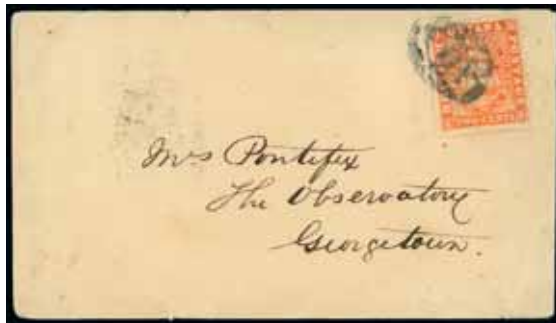 Mrs Pontifex
The Observatory
Georgetown.